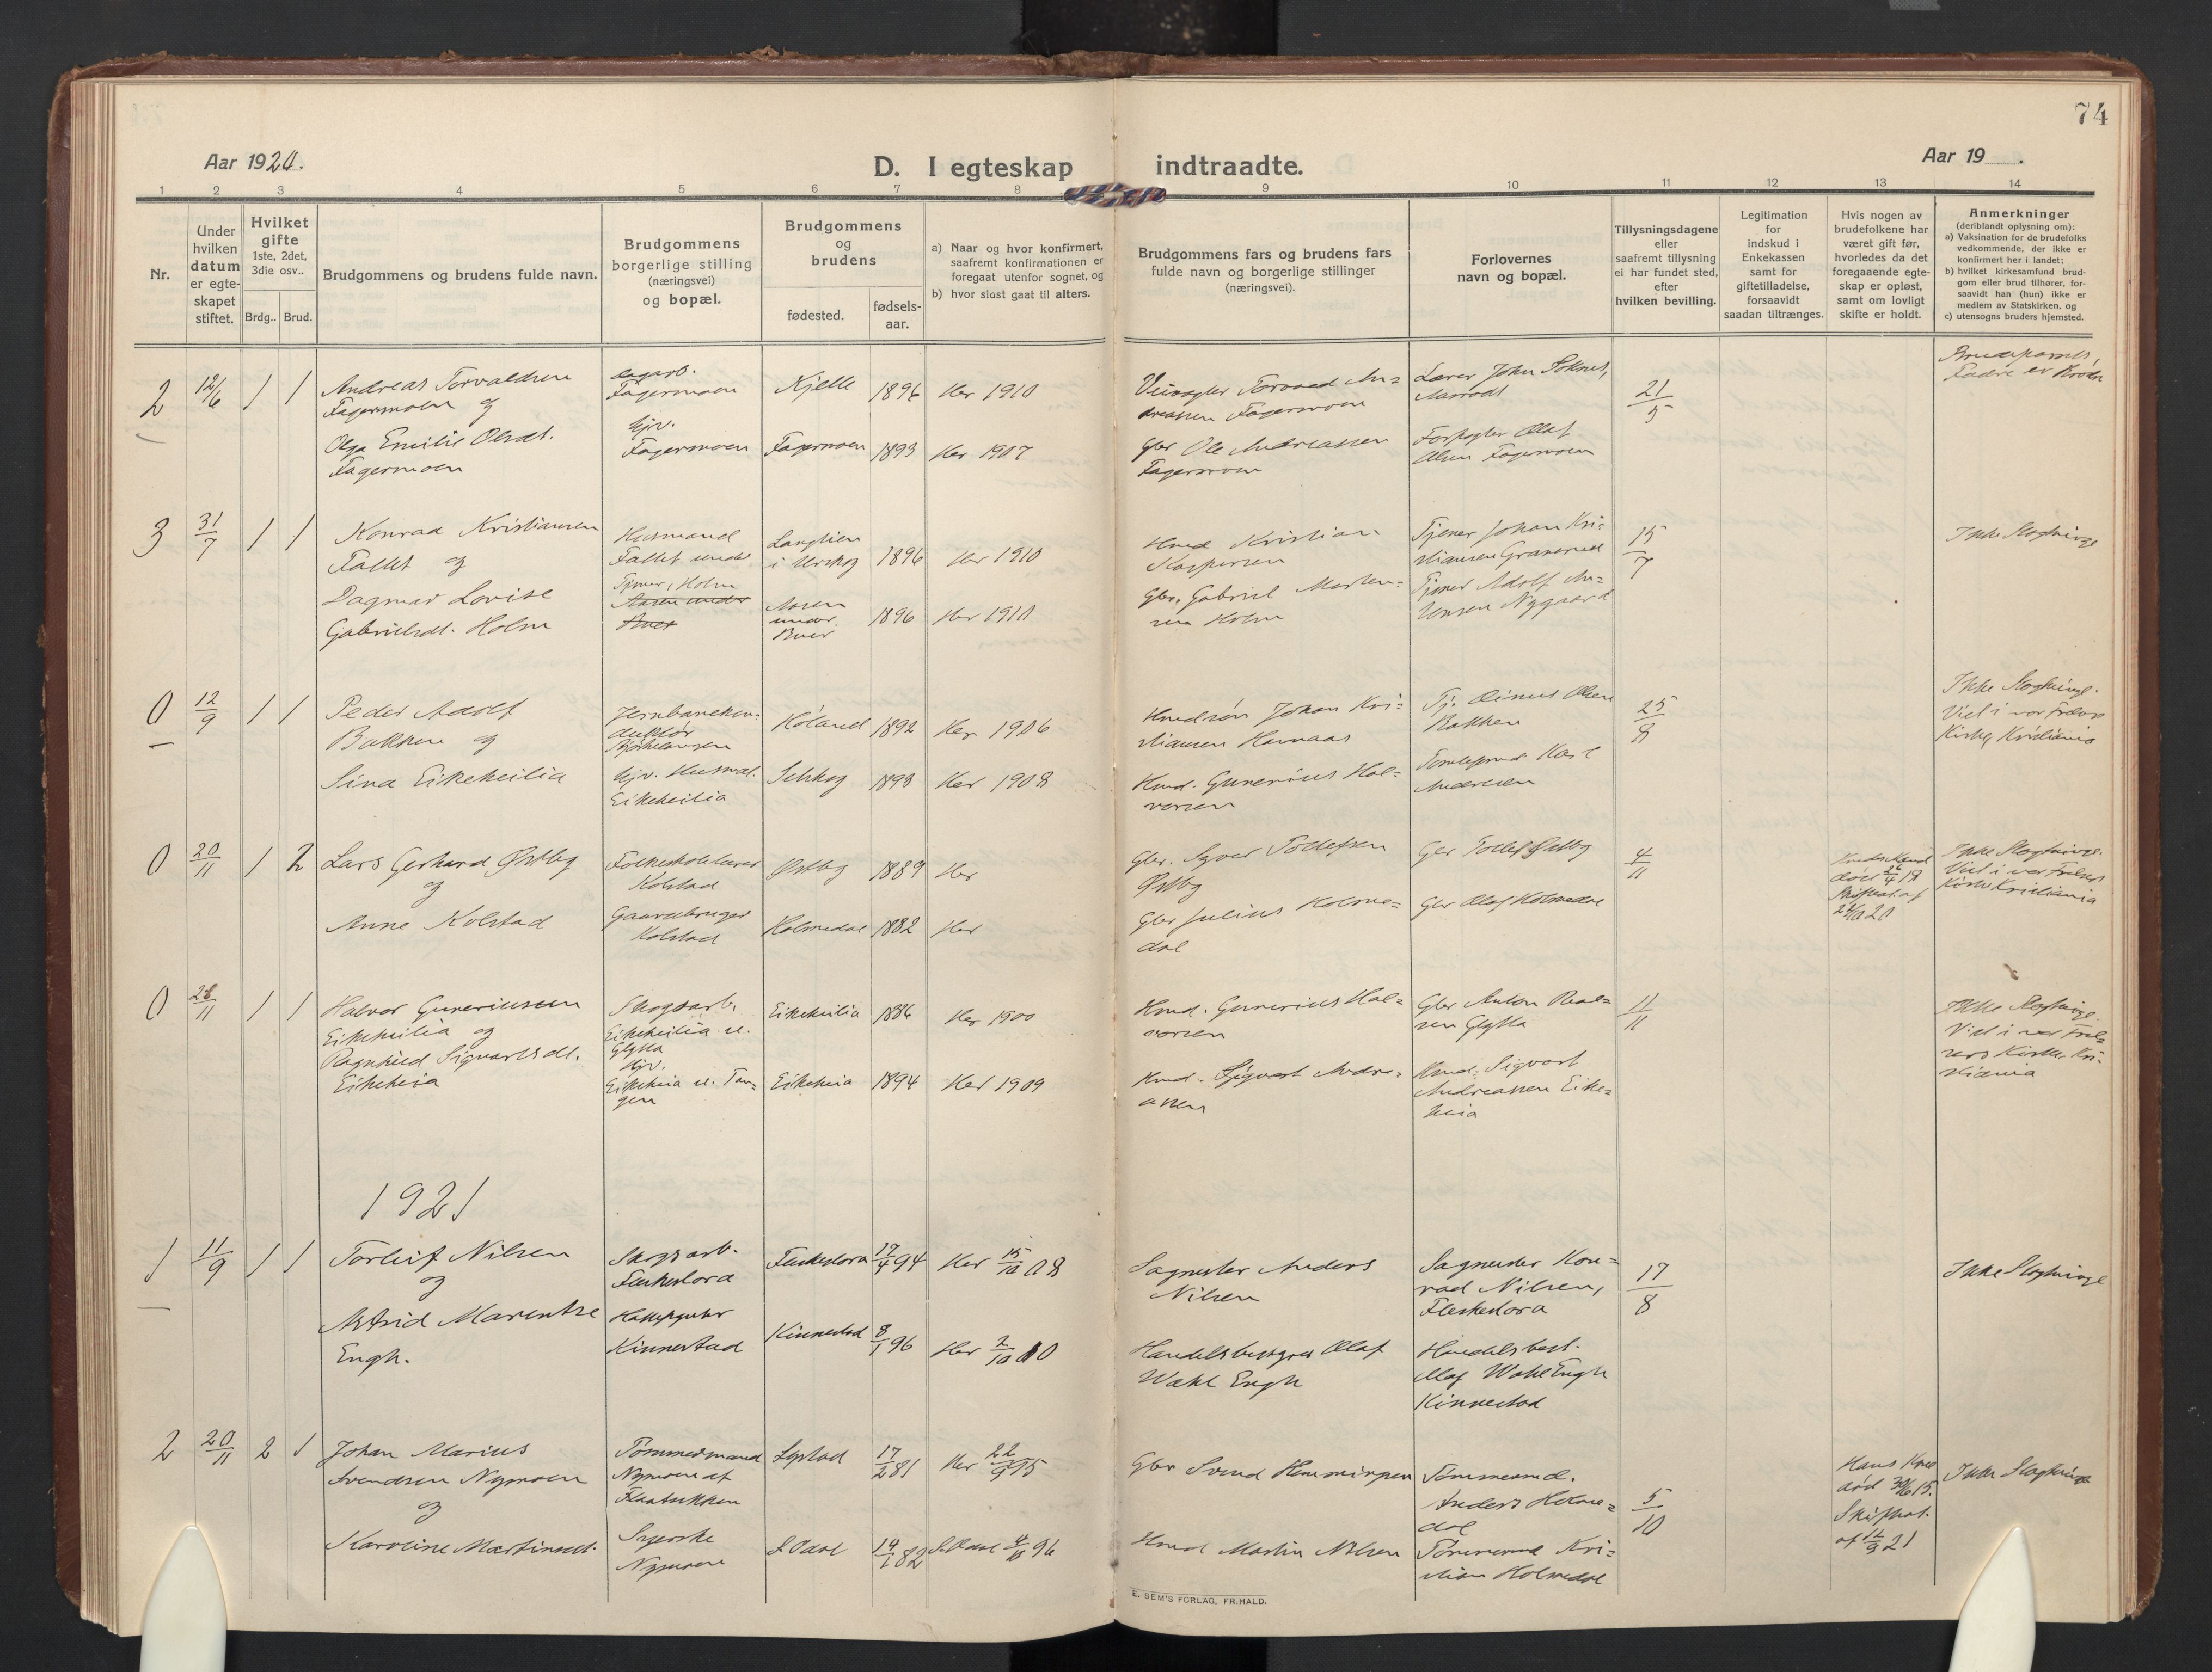 74
Aar 1920.
D. I egteskap indtraadte.
Aar 19 .
1 2 3 4 5 6 7 8 9 10 11 12 13 14
Nr.
Under hvilken datum er egteskapet stiftet.
Hvilket gifte 1ste, 2det, 3die osv..
Brdg.. Brud.
Brudgommens og brudens fulde navn.
Brudgommens borgerlige stilling (næringsvei) og bopæl.
Brudgommens og brudens
fødested.
fødselsaar.
a) Naar og hvor konfirmert, saafremt konfirmationen er foregaat utenfor sognet, og
b) hvor sidst gaat til alters.
Brudgommens fars og brudens fars fulde navn og borgerlige stillinger (næringsvei).
Forlovernes navn og bopæl.
Tillysningsdagene eller saafremt tillysning ei har fundet sted, efter hvilken bevilling.
Legitimation for indskud i Enkekassen samt for giftetilladelse, forsaavidt saadan tiltrænges.
Hvis nogen av brudefolkene har været gift før, hvorledes da det foregaaende egteskap er opløst, samt om lovligt skifte er holdt.
Anmerkninger (deriblandt oplysning om):
a) Vaksination for de brudefolks vedkommende, der ikke er konfirmert her i landet;
b) hvilket kirkesamfund brudgom eller brud tilhører, forsaavidt han (hun) ikke er medlem av Statskirken, og
c) utensogns bruders hjemsted.
2 12/6 1 1
Andreas Torvaldsen
Fagermoen og
Olga Emilie Olsdt.
Fagermoen
Fagermoen
Hjv.
Fagermoen
Kjelle 1896 Her 1910
Fagermoen 1893 Her 1907
Torvald An=
dreassen Fagermoen
Gbr Ole Andreassen
Fagermoen
Lærer John
Olaf
Olsen Fagermoen
21/5
3 31/7 1 1
Konrad Kristiansen
Fallet og
Dagmar Lovise
Gabrielsdt. Holm
Husmand
Fallet under
Tjener, Holm
Aasen under
Langlien
i Urskog 1896 Her 1910
Aasen
under
Buer 1896 Her 1911
Hmd Kristian
Kaspersen
Gbr. Gabriel Morten=
sen Holm
Tjener Johan Kri=
stiansen Granerud
Tjener Adolf
Nygaard
15/7
Ikke Slegtninge
0 12/9 1 1
Peder Adolf
Bakken og
Sina Eikeheilia
Jernbanekon-
duktør
Hjv. Husmd.
Eikeheilia
Høland 1892 Her 1906
Setskog 1893 Her 1908
Johan Kri-
stiansen
Hmd. Gunerius Hal=
vorsen
Tj. Olsen
Bakken
Karl
Andersen
25/8
Ikke Slegtninge.
Viet i vor Frelsers
Kirke, Kristiania
0 20/11 1 2
Lars Gerhard Østby
og
Anne Kolstad
Folkeskolelærer
Kolstad
Gaardbruger
Kolstad
Østby 1889 Her
Holmedal 1882 Her
Gbr. Syver Tollefsen
Østby
Gbr Julius Holme=
dal
Gbr Tollef Østby
Gbr Olaf Holmedal
4/11
Ikke Slegtninge.
Viet i vor Frelsers
Kirke Kristiania
0 28/11 1 1
Halvor Guneriussen
Eikeheilia og
Ragnhild Sigvartsdt.
Eikeheia
Skogsarb.
Eikeheilia u.
Glysta
Hjv.
Eikeheia u. Tan=
gen
Eikeheilia 1886 Her 1900
Eikeheia 1894 Her 1909
Hmd. Gunerius Hal=
vorsen
Hmd. Sigvart Andre=
assen
Gbr Anton
Glysta
Hmd. Sigvart
Andreassen Eike=
heia
11/11
Ikke Slegtninge.
Viet i vor Frel=
sers Kirke, Kri-
stiania
1921
1 11/9 1 1
Torleif Nilsen
og
Astrid Marentze
Engh.
Skogsarb.
Fleskedora
Kinnestad
Fleskedora 17/4 94 Her 15/10 08
Kinnestad 8/1 96 Her 2/10 10
Sagmester Anders
Nilsen
Handelsbestyrer Olaf
Wahl Engh
Sagmester Kon=
rad Nilsen,
Fleskedora
Handelsbest.
Olaf Wahl Engh
Kinnestad
17/8
Ikke Slegtninge
2 20/11 2 1
Johan Marius
Svendsen Nymoen
og
Karoline Martinsdt.
Tømmermand
Nymoen af
Syerske
Nymoen
17/2 81 Her 22/9 95
S. Odal 14/1 82 S. Odal 4/10 96
Gbr Svend Hemmingsen
Hmd Martin Nilsen
Tømmermd.
Anders Holme=
dal
Tømmermd Kri=
stian Holmedal
5/10
Hans Kone
død 30/6 15.
Skifteat.
af 12/9 21
Ikke Slegtninge
E. SEM'S FORLAG, FR.HALD.